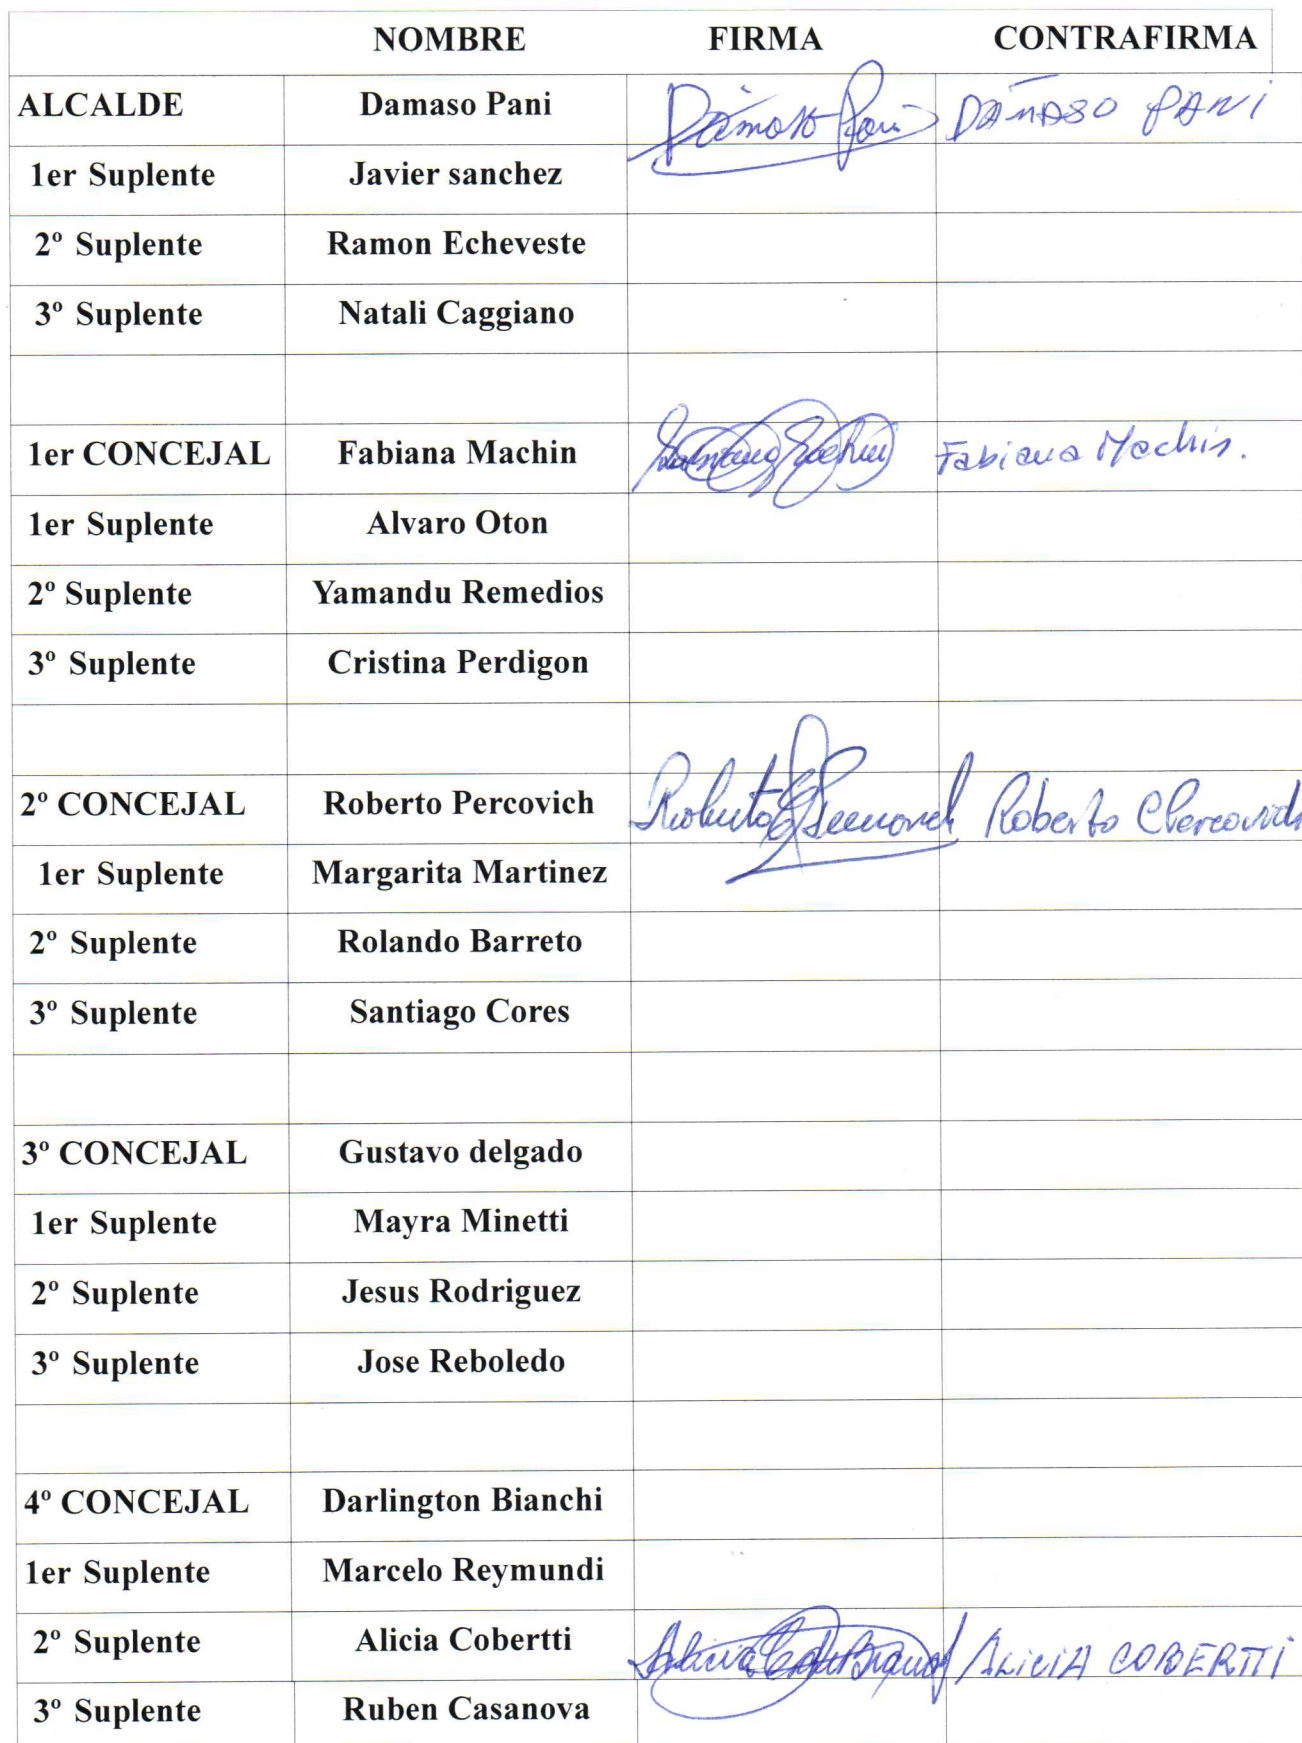 NOMBRE FIRMA CONTRAFIRMA
ALCALDE Damaso Pani Dámaso Pani DAMASO PANI
1er Suplente Javier sanchez
2º Suplente Ramon Echeveste
3º Suplente Natali Caggiano
1er CONCEJAL Fabiana Machin Fabiana Machin.
1er Suplente Alvaro Oton
2º Suplente Yamandu Remedios
3º Suplente Cristina Perdigon
2º CONCEJAL Roberto Percovich Roberto Roberto CPercovich
1er Suplente Margarita Martinez
2º Suplente Rolando Barreto
3º Suplente Santiago Cores
3º CONCEJAL Gustavo delgado
1er Suplente Mayra Minetti
2º Suplente Jesus Rodriguez
3º Suplente Jose Reboledo
4º CONCEJAL Darlington Bianchi
1er Suplente Marcelo Reymundi
2º Suplente Alicia Cobertti Alicia ALICIA COBERTTI
3º Suplente Ruben Casanova